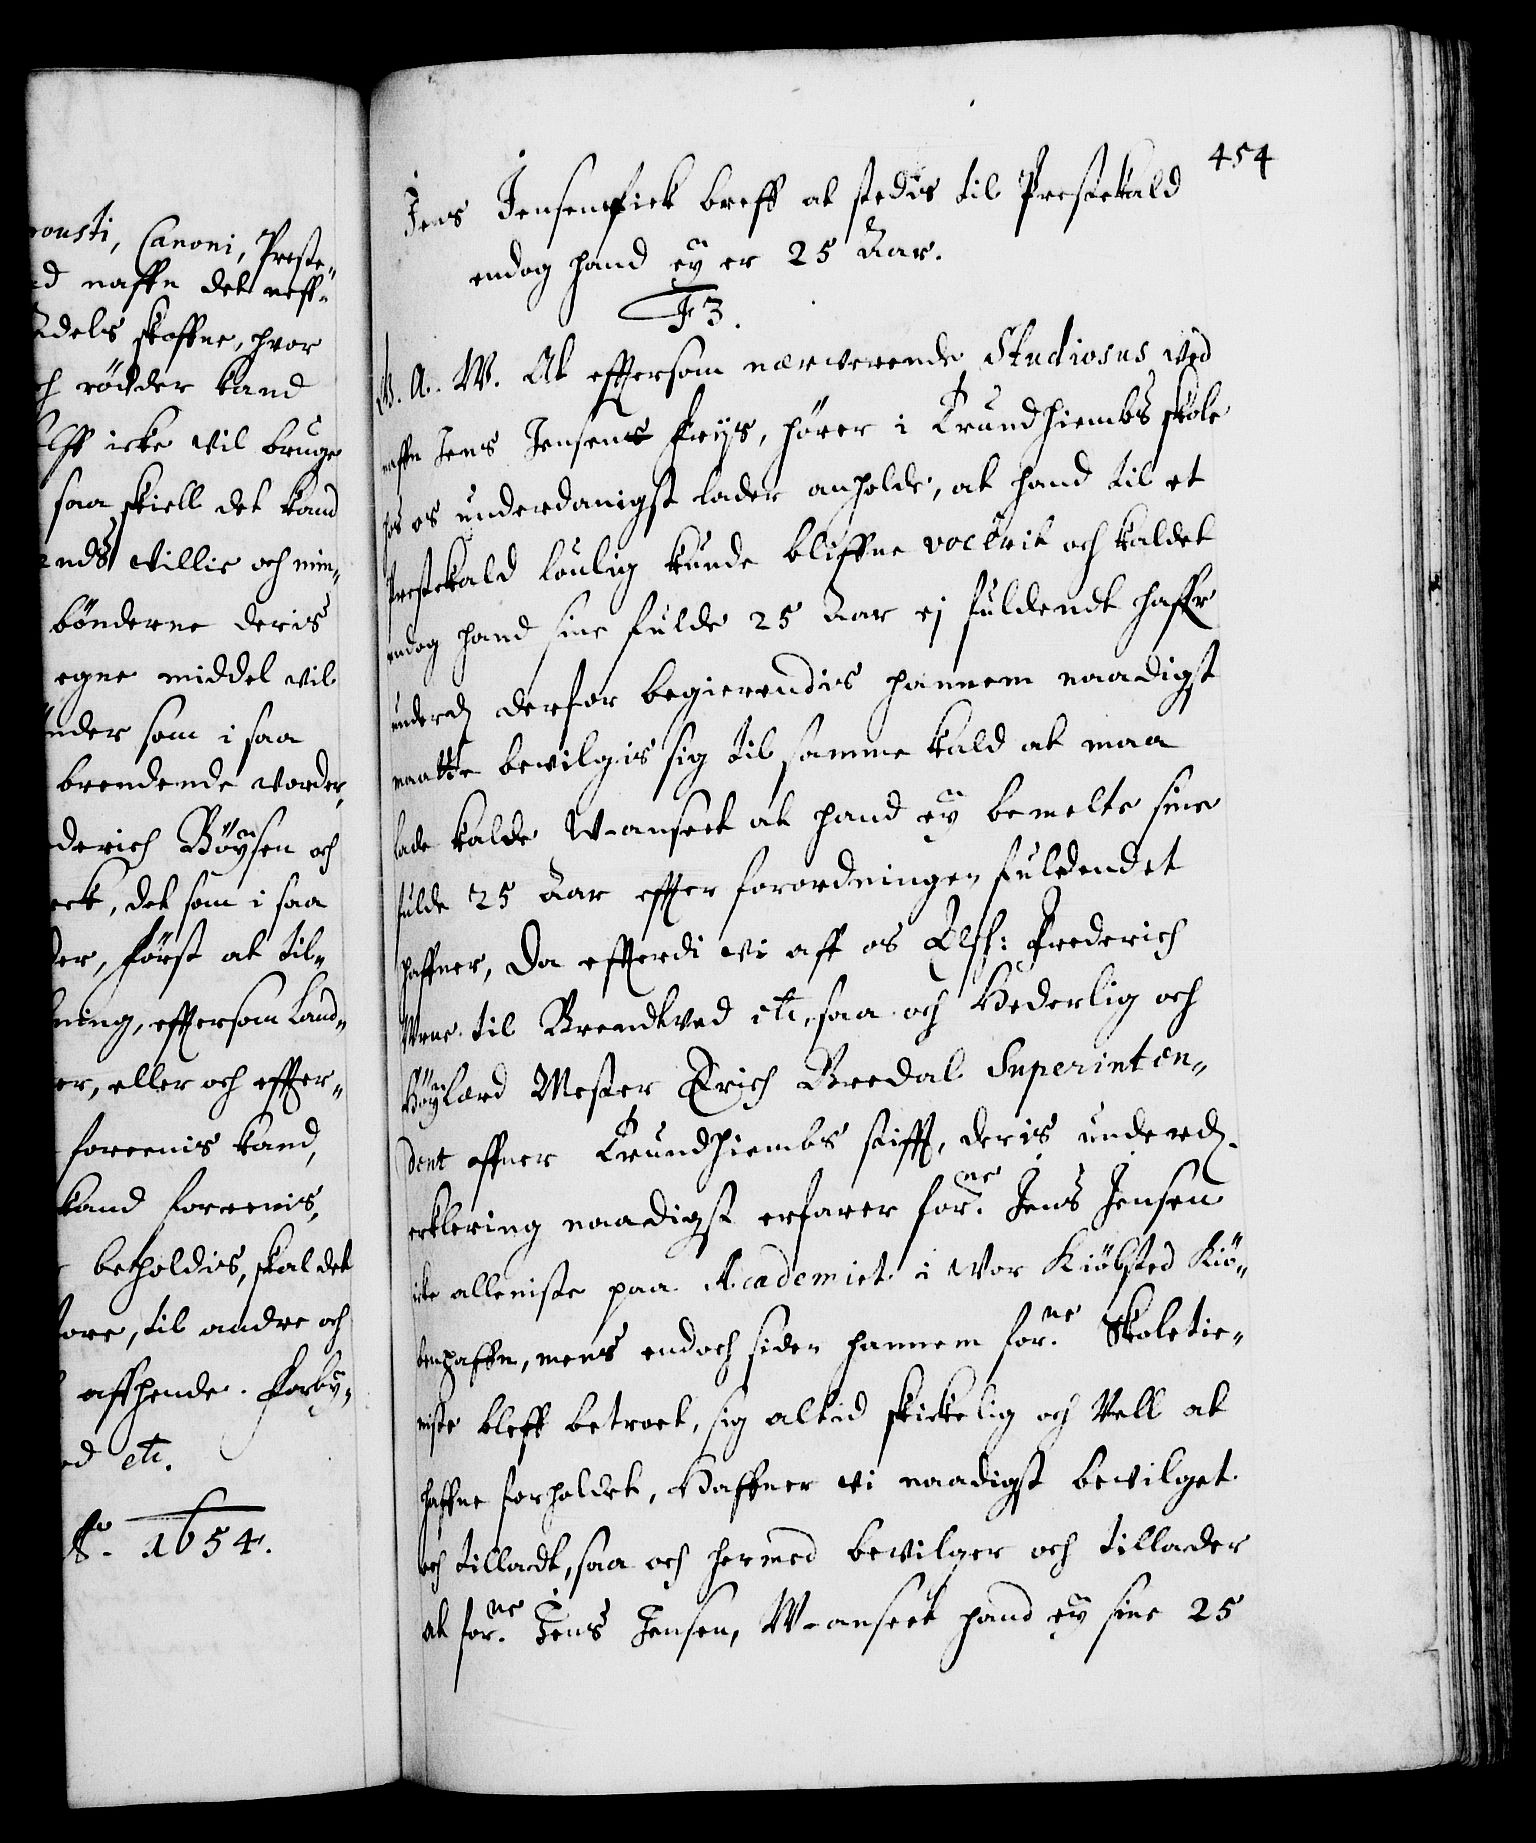 ronsti, Canoni, Preste-
d naffn det neff-
Adels skoffue, hvor
ch rødder kand
elff icke vil bruge
saa skiell det kand
ends villie och min-
bønderne deris
egne middel vil
ønder som i saa
brendende vorder,
derich Bøÿsen och
erk, det som i saa
der, først at til-
ning, effersom Land-
er, eller och effter-
foreenis kand,
kand foreenis,
beholdis, skal det
fore, til andre och
affhende. Forbÿ-
ed etc.
Ao. 1654.
454
Jens Jensen fick breff at stedis til Prestekald
endog hand eÿ er 25 Aar.
F3.
W. A. W. At effersom nærverende Studiosus, ved
naffn Jens Jensens Frÿs, hører i Trundhiembs skole
hos os underdanigst lader anholde, at hand til et
Prestekald loulig kunde bliffue vocerit och kaldet
endog hand sine fulde 25 Aar ej fuldendt haffr
underd. derfor begierendis hannem naadigst
maatte bevilgis sig til samme kald at maa
lade kalde W-anseet at hand eÿ bemelte sine
fulde 25 Aar effter forordningen fuldendet
haffuer, Da effterdi vi aff os Elsk: Frederich
Urne til Brendtved etc, saa och Hederlig och
Høÿlærd Mester Erich Bredal Superinten-
dent offuer Trundhiembs stifft, deris underd.
erklering naadigst erfarer forne. Jens Jensen
icke alleniste paa Academiet i Wor Kiøbsted Kiø-
benhaffn, mens endoch siden hannem forne. Skoletie-
niste bleff betroet, sig altid skickelig och Vell at
haffue forholdet, Haffuer vi naadigst bevilget
och tilladt, saa och hermed bevilger och tillader
at forne. Jens Jensen, W-anseet hand eÿ sine 25